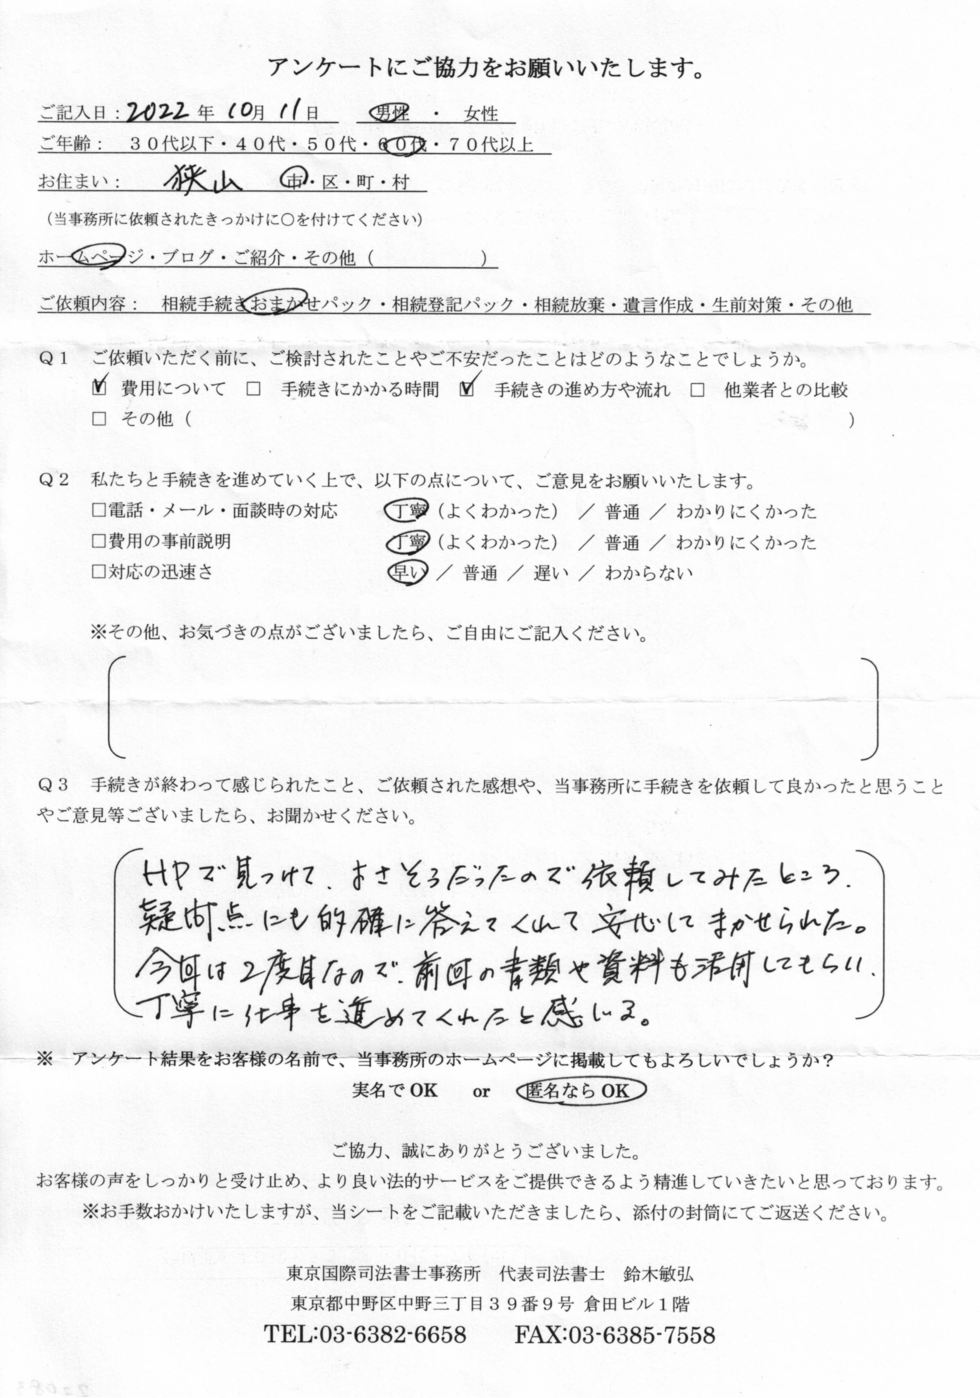 アンケートにご協力をお願いいたします。
ご記入日：2022年10月11日　男性　・　女性
ご年齢：　３０代以下・４０代・５０代・６０代・７０代以上
お住まい：　狭山　市・区・町・村
（当事務所に依頼されたきっかけに○を付けてください）
ホームページ・ブログ・ご紹介・その他（　　　　　　）
ご依頼内容：　相続手続きおまかせパック・相続登記パック・相続放棄・遺言作成・生前対策・その他
Ｑ１　ご依頼いただく前に、ご検討されたことやご不安だったことはどのようなことでしょうか。
☑　費用について　□　手続きにかかる時間　☑　手続きの進め方や流れ　□　他業者との比較
□　その他（　　　　　　　　　　　　　　　　　　　　　　　　）
Ｑ２　私たちと手続きを進めていく上で、以下の点について、ご意見をお願いいたします。
□電話・メール・面談時の対応　丁寧（よくわかった）　／　普通　／　わかりにくかった
□費用の事前説明　丁寧（よくわかった）　／　普通　／　わかりにくかった
□対応の迅速さ　早い　／　普通　／　遅い　／　わからない
※その他、お気づきの点がございましたら、ご自由にご記入ください。
Ｑ３　手続きが終わって感じられたこと、ご依頼された感想や、当事務所に手続きを依頼して良かったと思うこと
やご意見等ございましたら、お聞かせください。
HPで見つけて、よさそうだったので依頼してみたところ、
疑問点にも的確に答えてくれて安心してまかせられた。
今回は2度目なので、前回の書類や資料も活用してもらい、
丁寧に仕事を進めてくれたと感じる。
※　アンケート結果をお客様の名前で、当事務所のホームページに掲載してもよろしいでしょうか？
実名でOK　or　匿名ならOK
ご協力、誠にありがとうございました。
お客様の声をしっかりと受け止め、より良い法的サービスをご提供できるよう精進していきたいと思っております。
※お手数おかけいたしますが、当シートをご記載いただきましたら、添付の封筒にてご返送ください。
東京国際司法書士事務所　代表司法書士　鈴木敏弘
東京都中野区中野三丁目３９番９号 倉田ビル１階
TEL:03-6382-6658　FAX:03-6385-7558